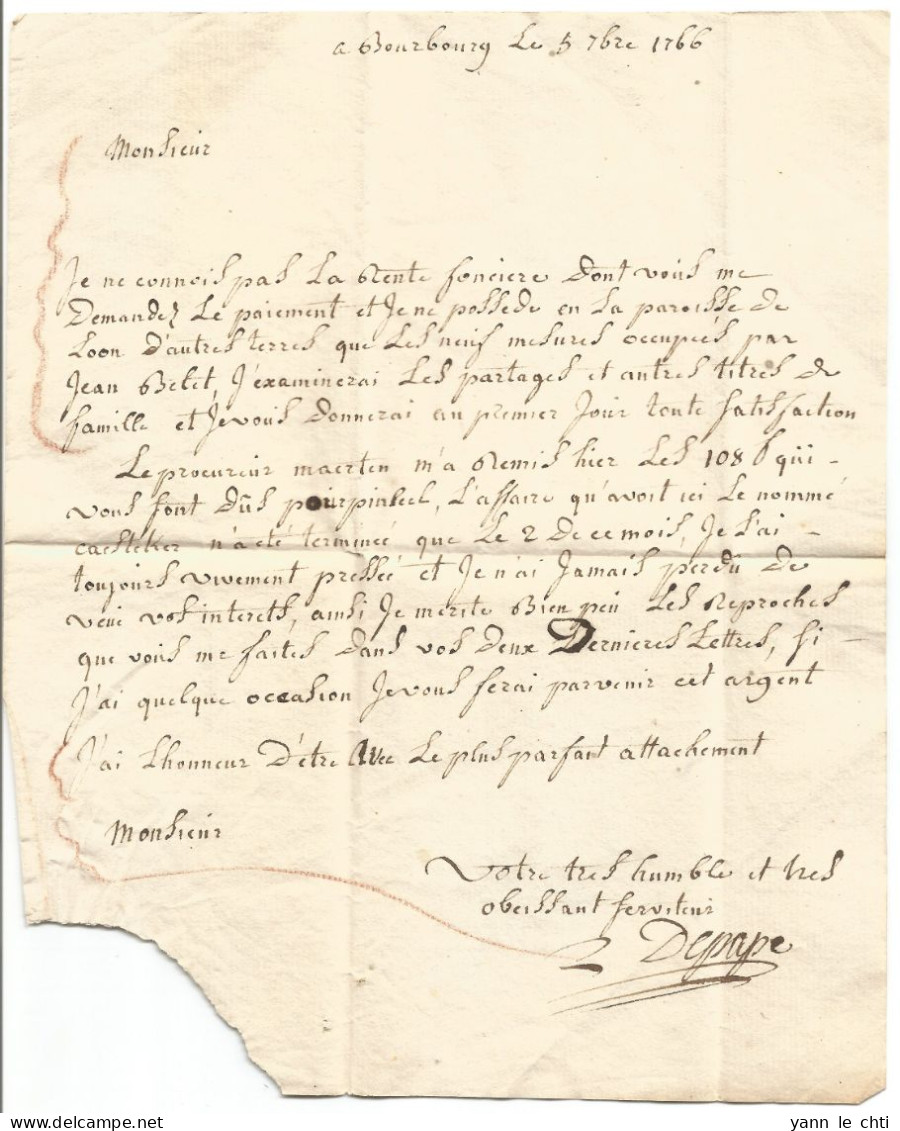 a Bourbourg Le 5 7bre 1766
Monsieur
Je ne connois pas La Rente fonciere Dont vous me
Demandez Le paiement et Je ne possede en La paroisse de
Loon d'autres terres que Les neuf mesures occupées par
Jean Belet, J'examinerai Les partages et autres titres de
famille et Je vous donnerai au premier Jour toute satisfaction
Le procureur maerten m'a Remis hier Les 108 # qui -
vous sont dûs pour L'affaire qu'avoit ici Le nommé
n'a eté terminée que Le 2 De ce mois, Je L'ai -
toujours vivement pressée et Je n'ai Jamais perdu de
veüe vos interets, ainsi Je merite Bien peu Les Reproches
que vous me faites dans vos deux Dernieres Lettres, si -
J'ai quelque occasion Je vous ferai parvenir cet argent
J'ai Lhonneur D'étre avec Le plus parfait attachement
Monsieur
Votre tres humble et tres
obeissant serviteur
Depape
yann le chti